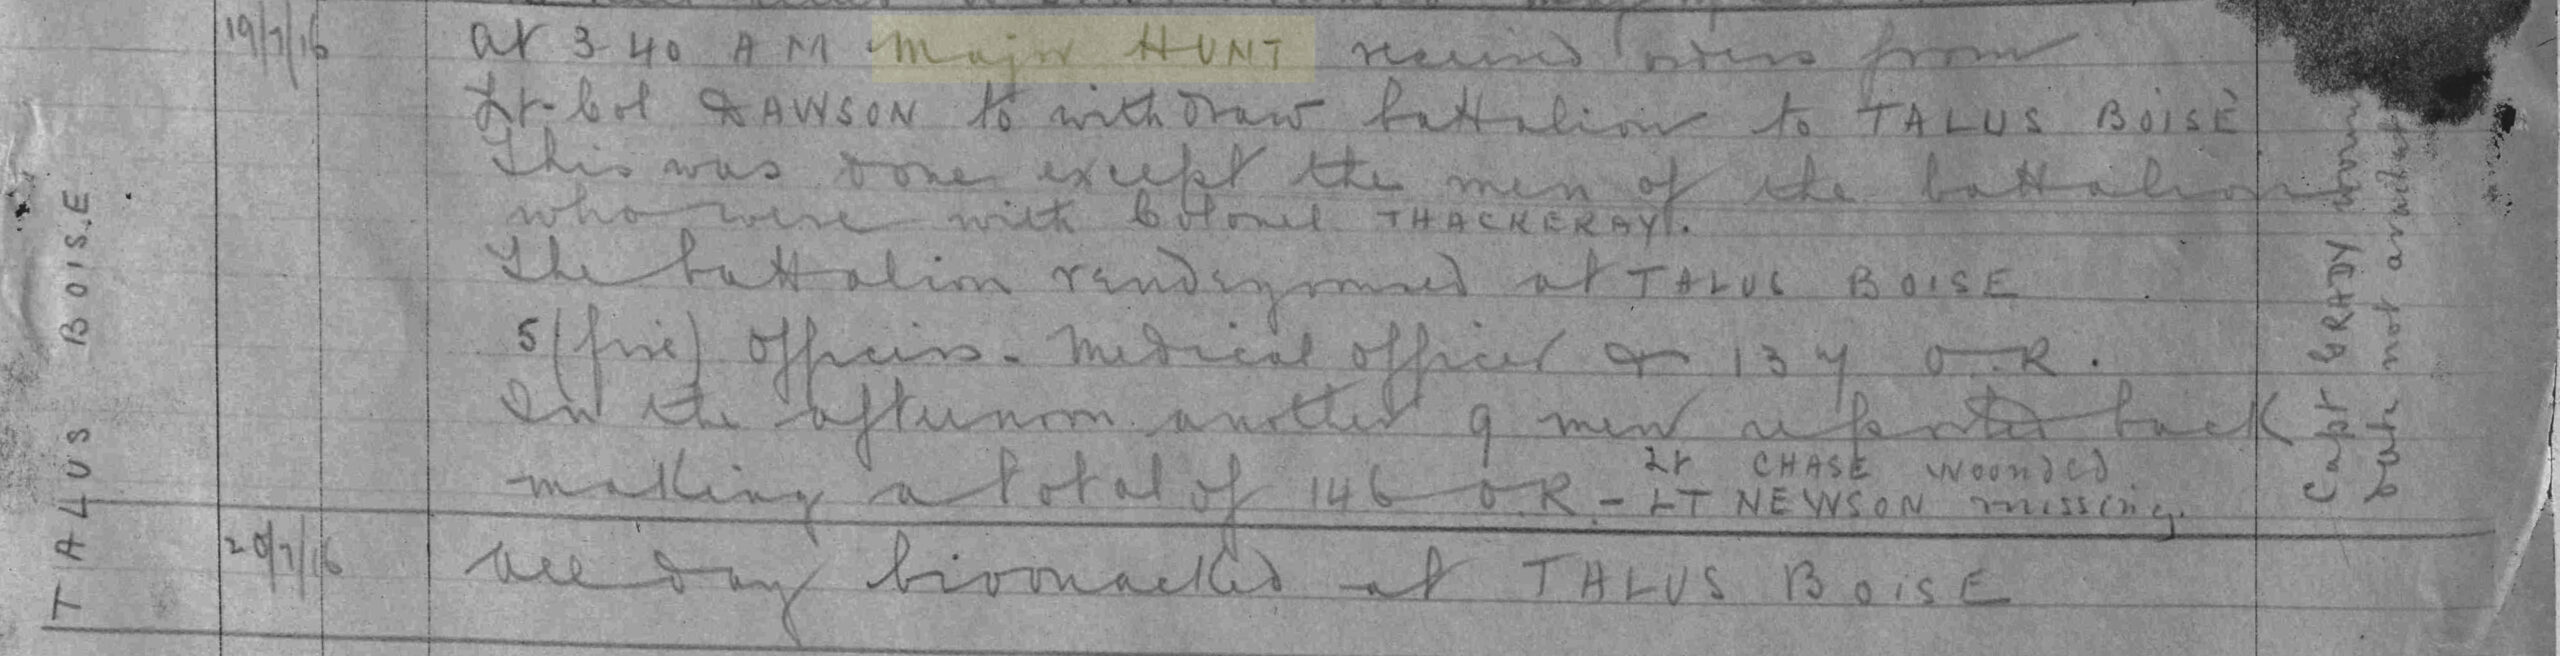 TALUS BOISE
19/7/16
at 3-40 AM Major HUNT received orders from
Lt-Col DAWSON to withdraw battalion to TALUS BOISE
This was done except the men of the battalion
who were with Colonel THACKERAY.
The battalion rendezvoused at TALUS BOISE
5 (five) officers - Medical officer & 137 O.R.
In the afternoon another 9 men reported back
Lt CHASE wounded
making a total of 146 O.R. - LT NEWSON missing.
20/7/16
All day bivouacked at TALUS BOISE
Capt GRADY
but not